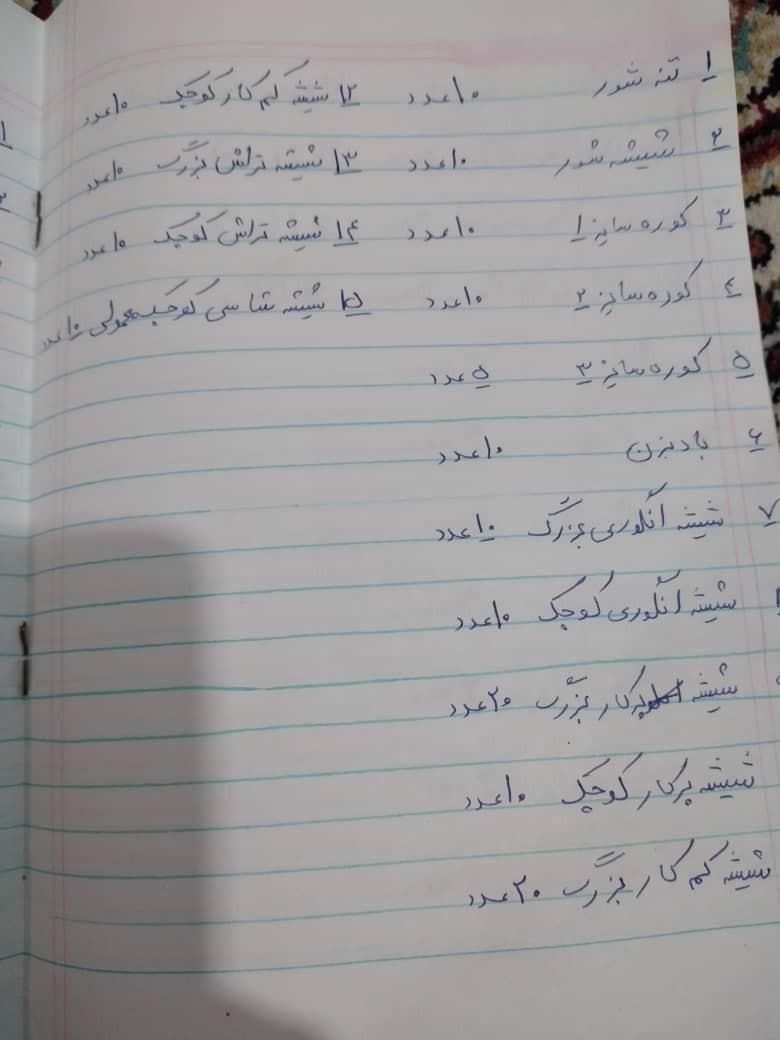 ۱ تنه شور ۱۰عدد
۲ شیشه شور ۱۰عدد
۳ کوره سایز ۱ ۱۰عدد
٤ کوره سایز ۲ ۱۰عدد
۵ کوره سایز ۳ ۵عدد
۶ بادبزن ۱۰عدد
۷ شیشه انگوری بزرگ ۱۰عدد
شیشه انگوری کوچک ۱۰عدد
شیشه پرکار بزرگ ۲۰عدد
شیشه پرکار کوچک ۱۰عدد
شیشه کم کار بزرگ ۲۰عدد
۱۲ شیشه کم کار کوچک ۱۰عدد
۱۳ شیشه تراش بزرگ ۱۰عدد
۱۴ شیشه تراش کوچک ۱۰عدد
۱۵ شیشه شاسی کوچک معمولی ۱۰عدد